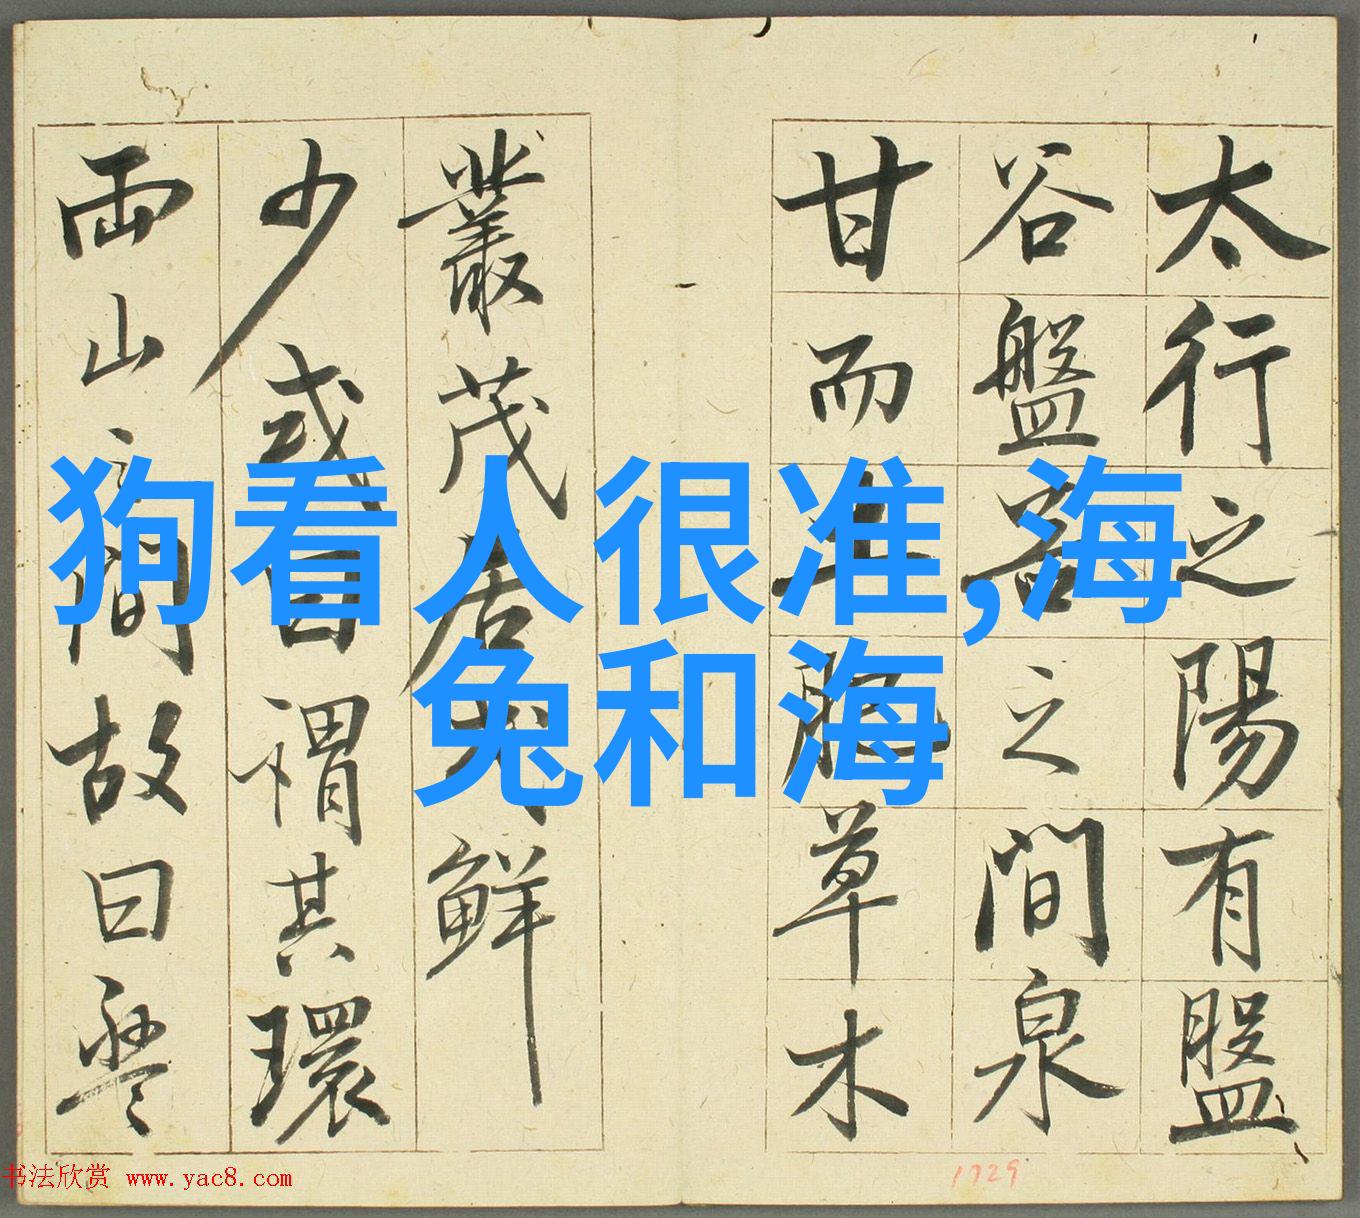 狗看人很准,海
兔和海
太行之陽有盤
谷盤谷之間泉
甘而土肥草木
叢茂居民鮮
少或曰謂其環
兩山之間故曰
书法欣赏 www.yac8.com
1729